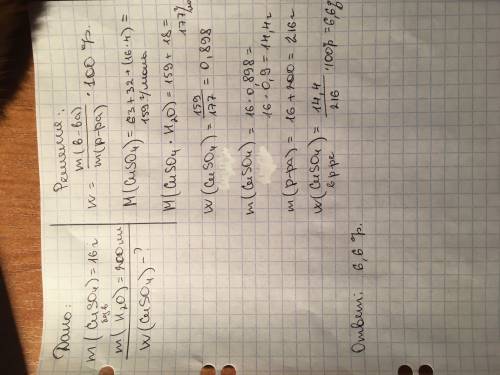 Дано:
m(CuSO₄)=16г
m(H₂O)=200мл
W(CuSO₄)-?
Решение:
W = m(в-ва) / m(р-ра) · 100 %.
M(CuSO₄)=63+32+(16·4)=
159 г/моль
M(CuSO₄·H₂O)=159+18=
177
W(CuSO₄)= 159/177 = 0,898
m(CuSO₄)= 16·0,898=
16·0,9=14,4г
m(р-ра)= 16+200=216г
W(CuSO₄)= 14,4/216 ·100%=6,6%
в р-ре
Ответ: 6,6 %.